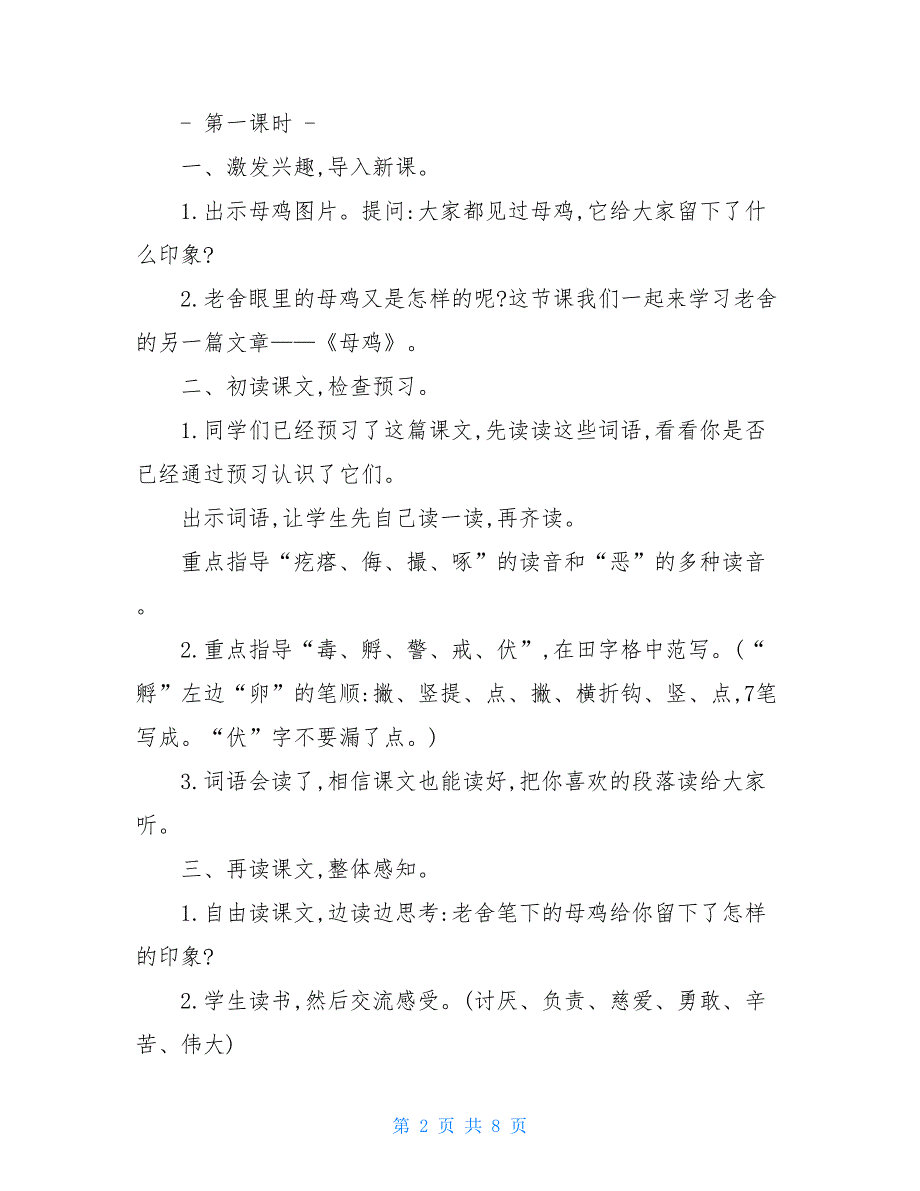 - 第一课时 -
一、激发兴趣,导入新课。
1.出示母鸡图片。提问:大家都见过母鸡,它给大家留下了什
么印象?
2.老舍眼里的母鸡又是怎样的呢?这节课我们一起来学习老舍
的另一篇文章——《母鸡》。
二、初读课文,检查预习。
1.同学们已经预习了这篇课文,先读读这些词语,看看你是否
已经通过预习认识了它们。
出示词语,让学生先自己读一读,再齐读。
重点指导“疙瘩、侮、撮、啄”的读音和“恶”的多种读音
。
2.重点指导“毒、孵、警、戒、伏”,在田字格中范写。(“
孵”左边“卵”的笔顺:撇、竖提、点、撇、横折钩、竖、点,7笔
写成。“伏”字不要漏了点。)
3.词语会读了,相信课文也能读好,把你喜欢的段落读给大家
听。
三、再读课文,整体感知。
1.自由读课文,边读边思考:老舍笔下的母鸡给你留下了怎样
的印象?
2.学生读书,然后交流感受。(讨厌、负责、慈爱、勇敢、辛
苦、伟大)
第 2 页 共 8 页